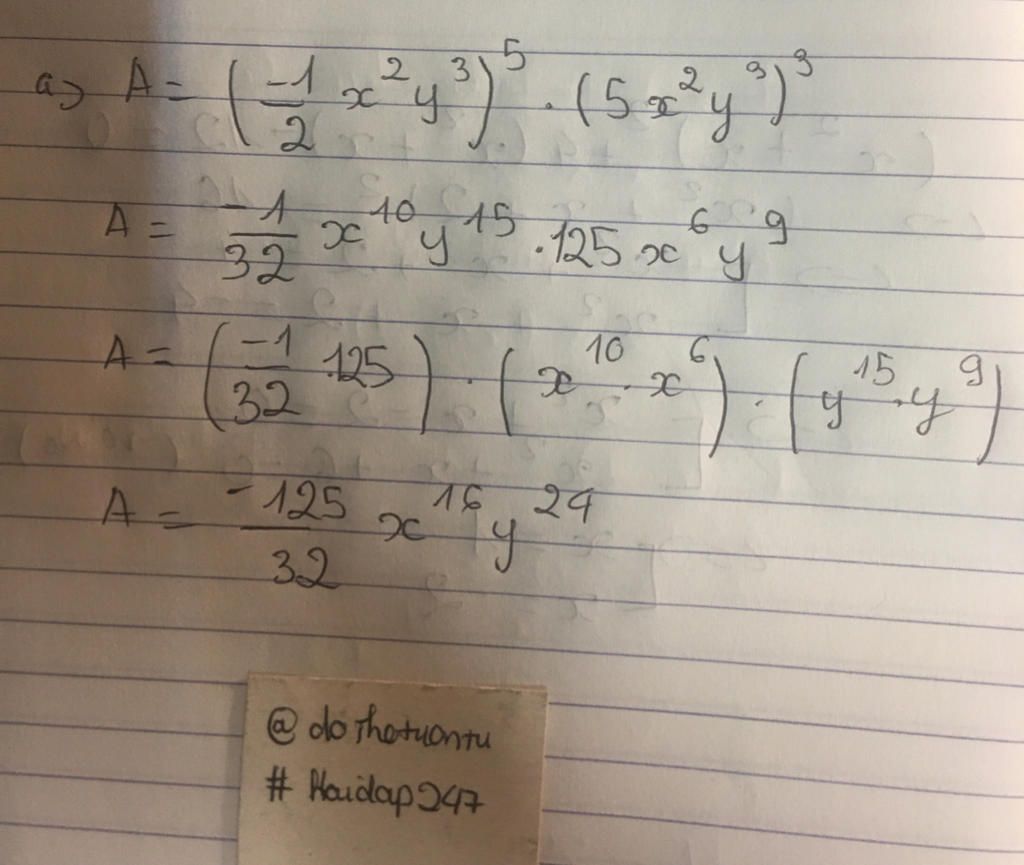 a) A = (-1/2 x²y³)⁵ . (5x²y³)³
A = -1/32 x¹⁰y¹⁵ . 125 x⁶y⁹
A = (-1/32 . 125) . (x¹⁰ . x⁶) . (y¹⁵ . y⁹)
A = -125/32 x¹⁶y²⁴
@dothetuantu
# Hoidap247